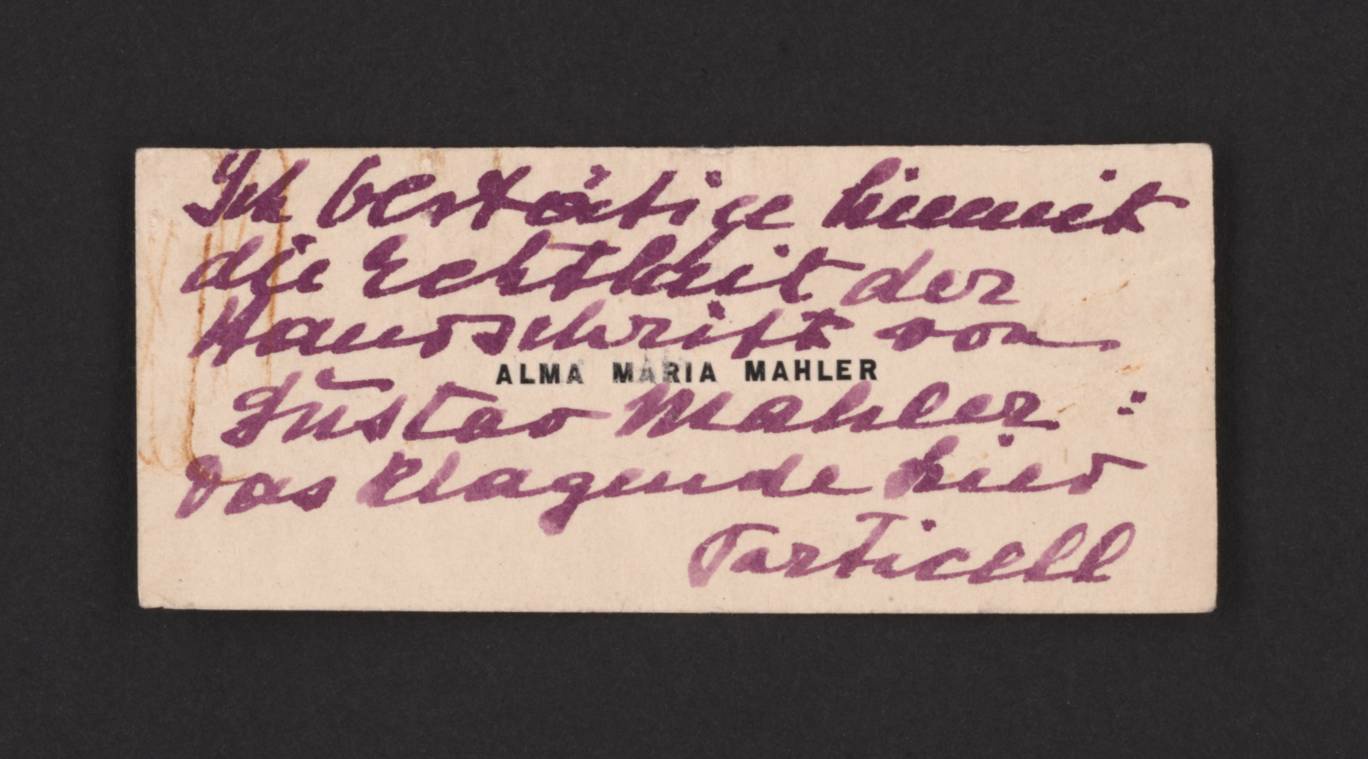 Ich bestätige hiemit
die Echtheit der
Handschrift von
ALMA MARIA MAHLER
Gustav Mahler :
Das klagende Lied
Particell